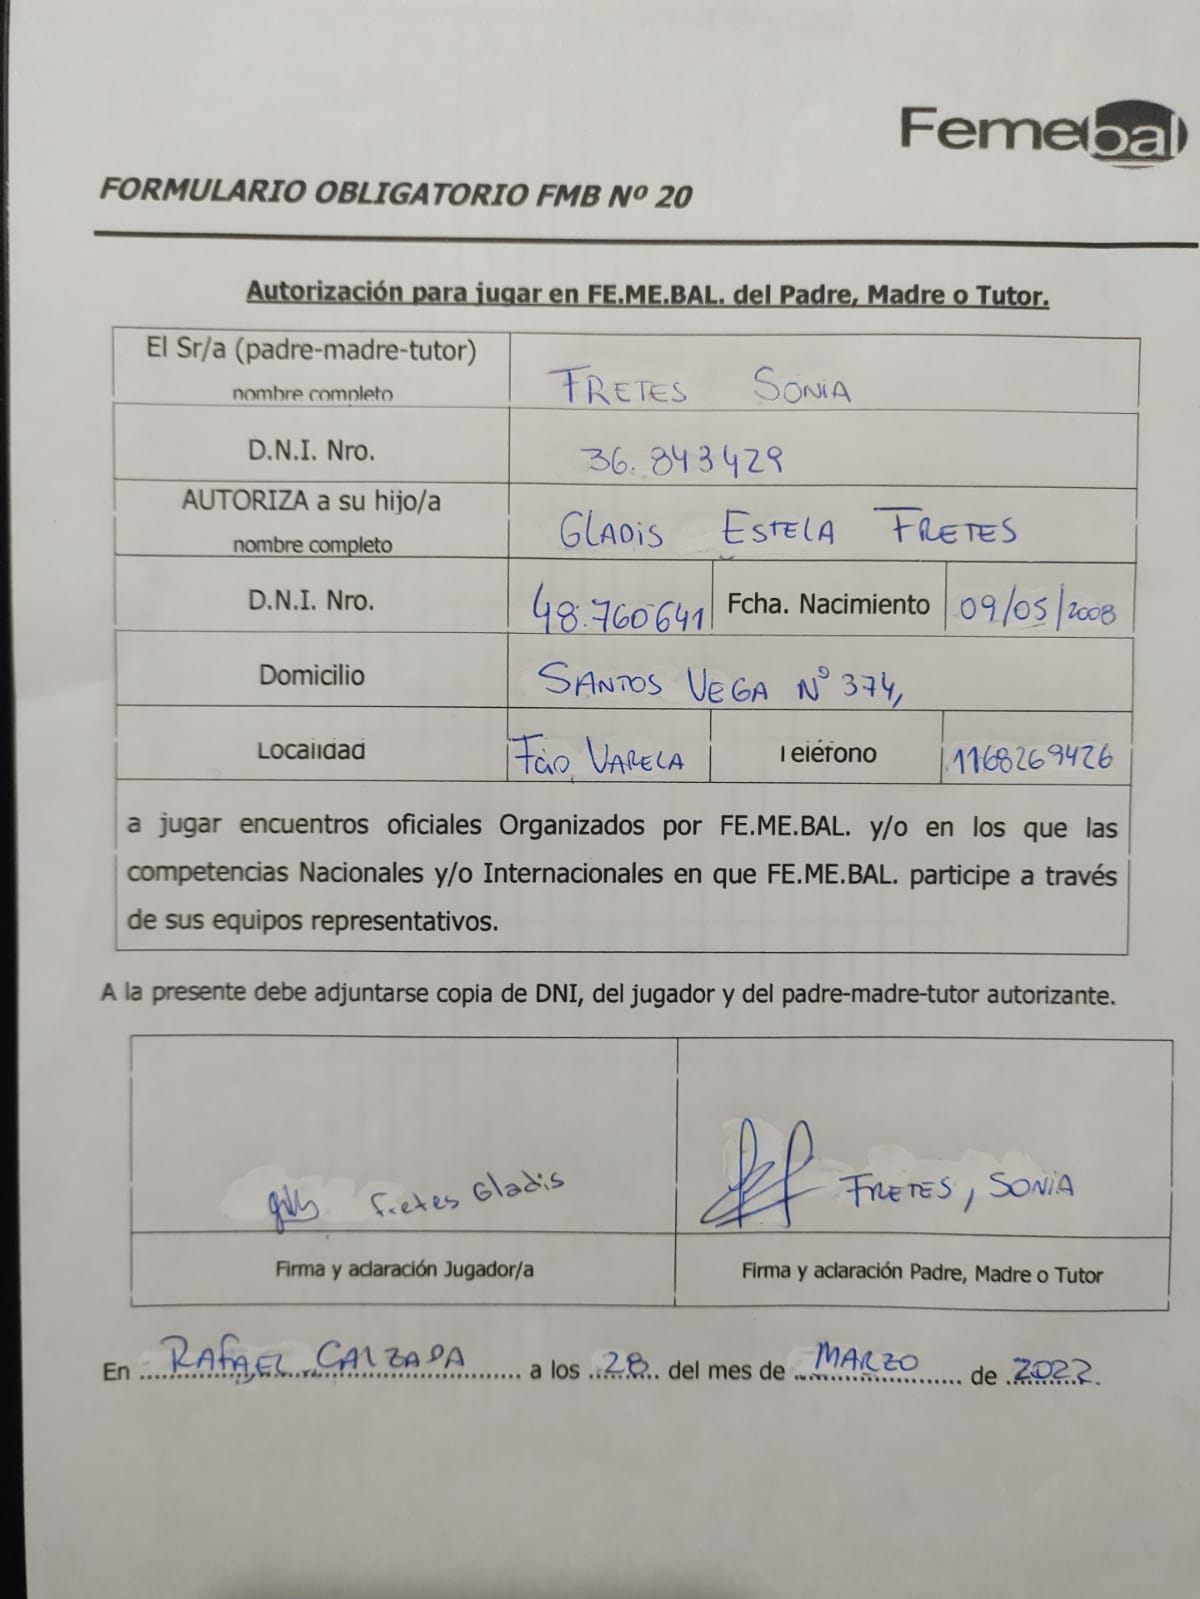 Femebal
FORMULARIO OBLIGATORIO FMB Nº 20
Autorización para jugar en FE.ME.BAL. del Padre, Madre o Tutor.
El Sr/a (padre-madre-tutor) nombre completo FRETES SONIA
D.N.I. Nro. 36.843429
AUTORIZA a su hijo/a nombre completo GLADIS ESTELA FRETES
D.N.I. Nro. 48.760641 Fcha. Nacimiento 09/05/2008
Domicilio SANTOS VEGA Nº 374,
Localidad Fcio VARELA Teléfono 1168269426
a jugar encuentros oficiales Organizados por FE.ME.BAL. y/o en los que las
competencias Nacionales y/o Internacionales en que FE.ME.BAL. participe a través
de sus equipos representativos.
A la presente debe adjuntarse copia de DNI, del jugador y del padre-madre-tutor autorizante.
Fretes Gladis FRETES, SONIA
Firma y aclaración Jugador/a Firma y aclaración Padre, Madre o Tutor
En RAFAEL CALZADA a los 28 del mes de MARZO de 2022.